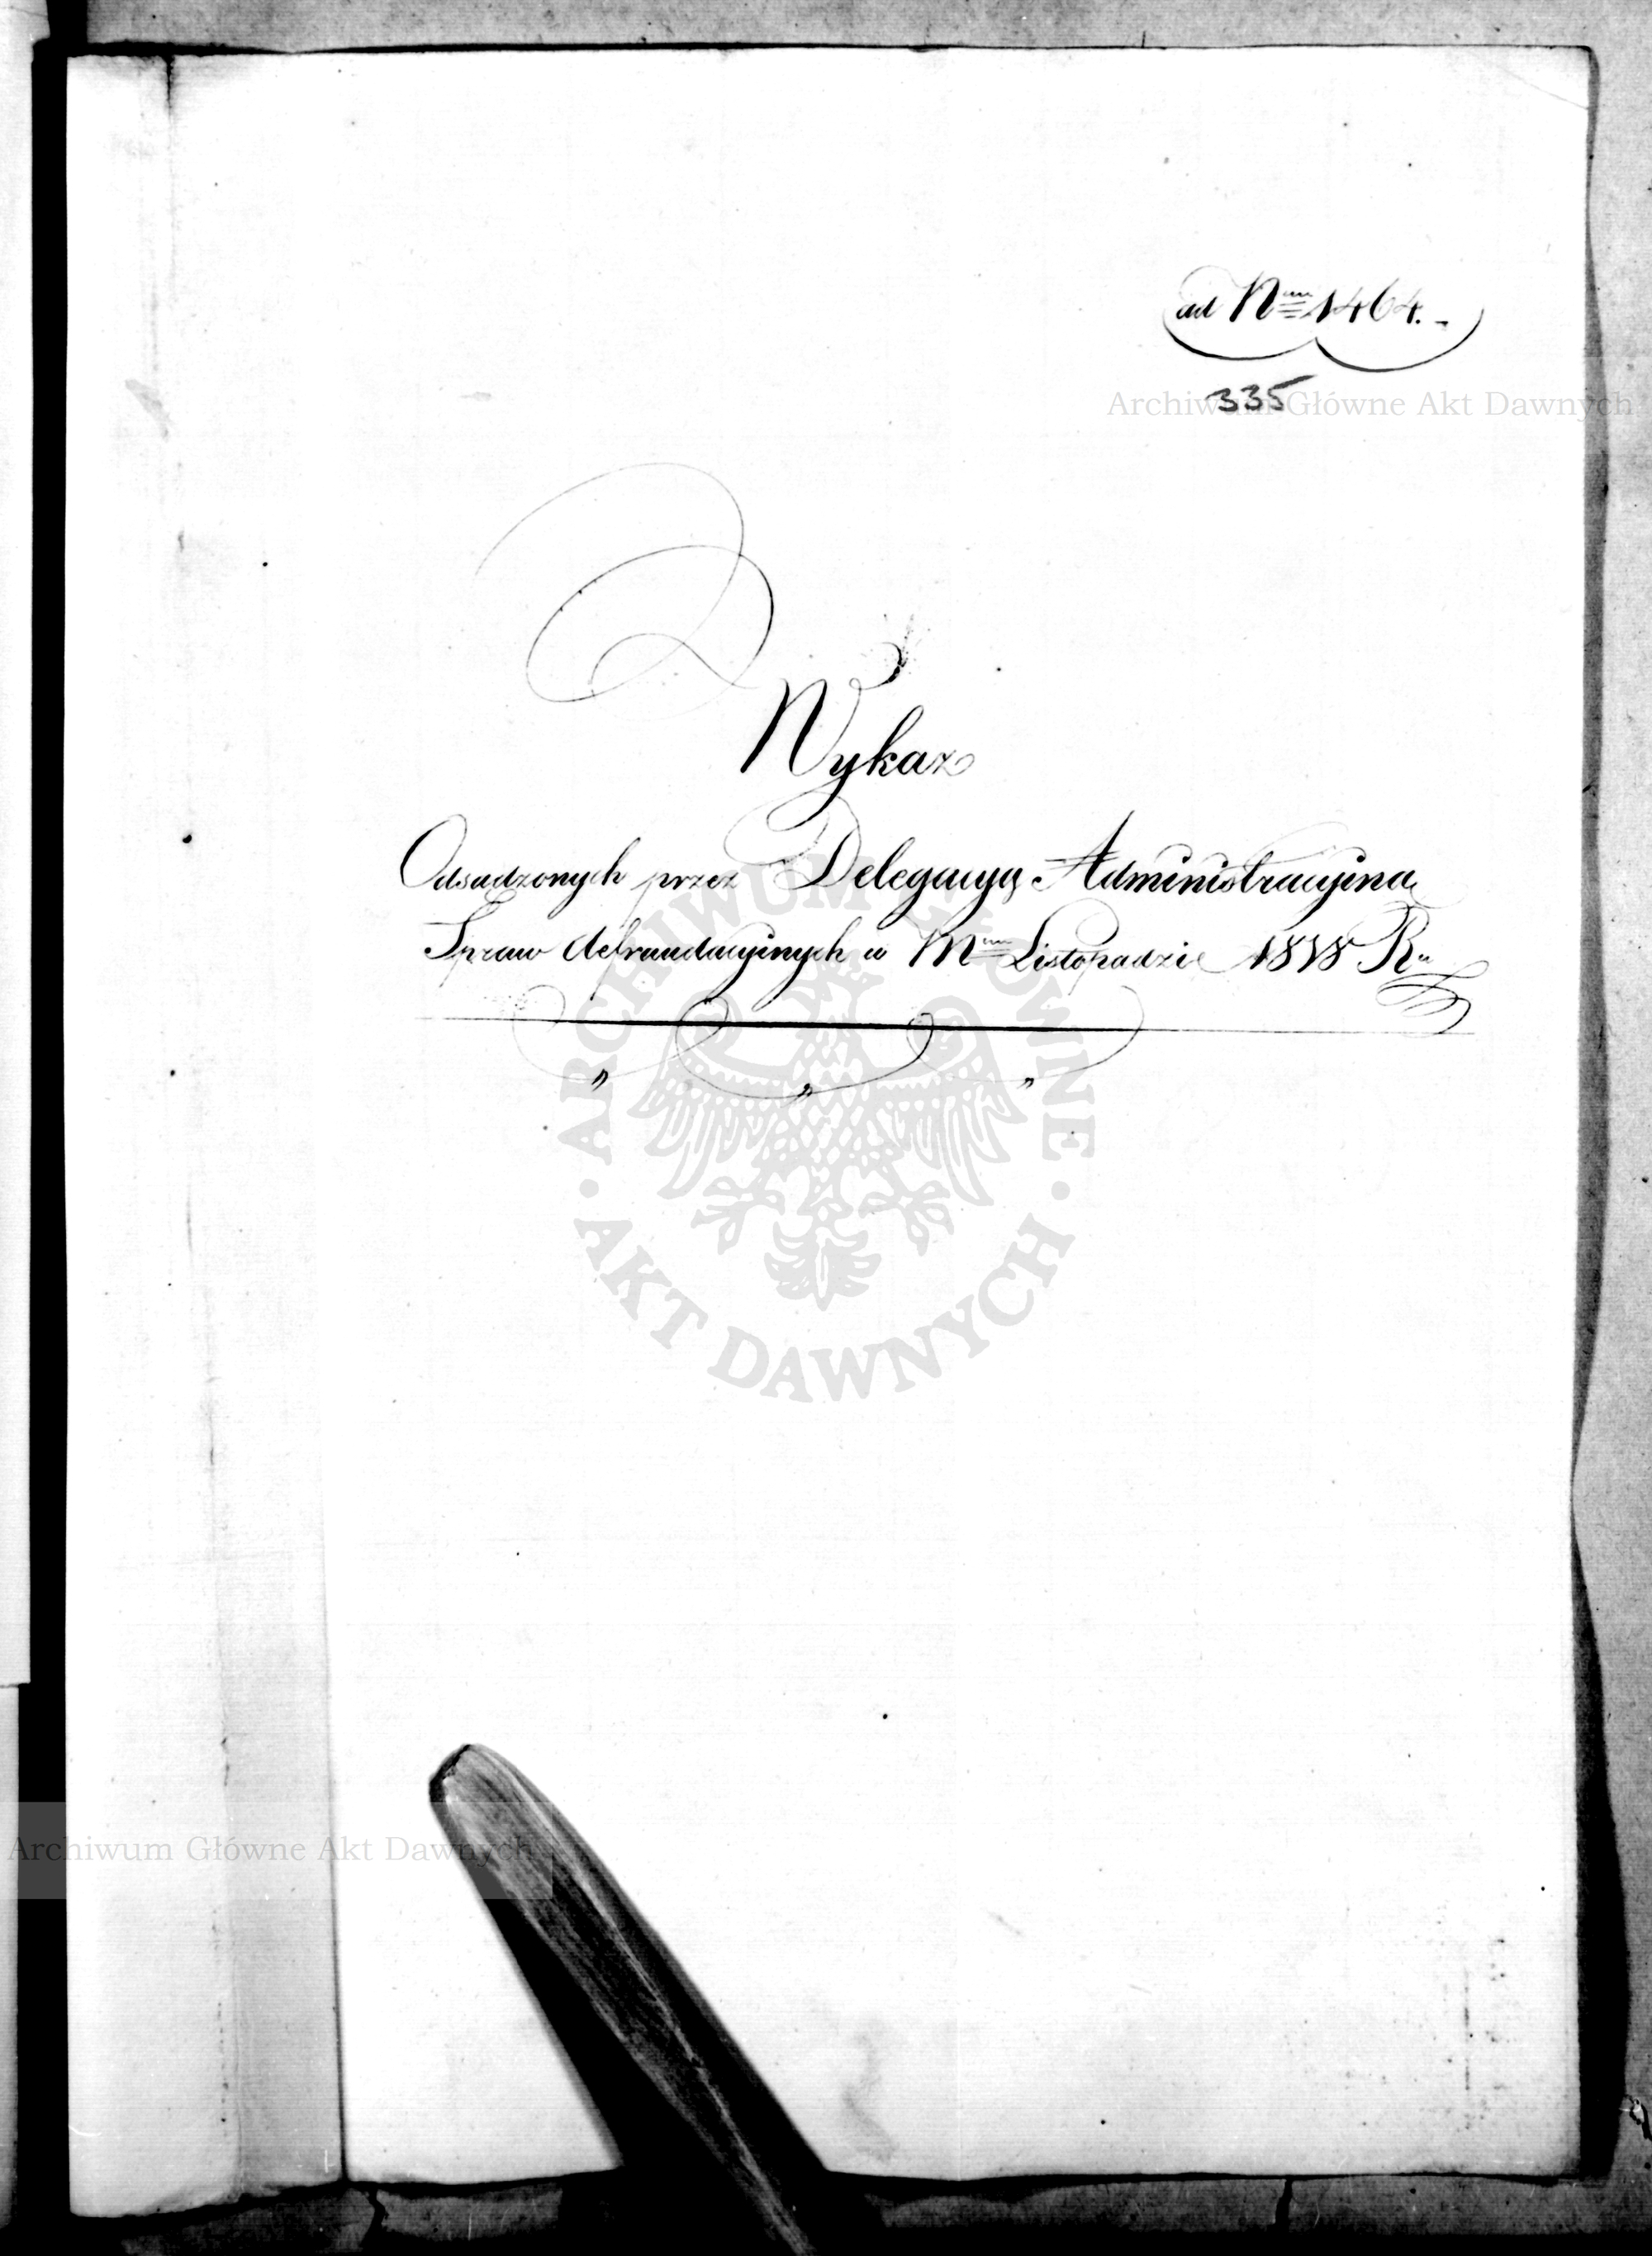 ad Num 1464.-
335
Archiwum Główne Akt Dawnych
Wykaz
Odsadzonych przez Delegacyą Administracyiną
Spraw defraudacyinych w Mcu Listopadzie 1818 Ru
ARCHIWUM GŁÓWNE AKT DAWNYCH
Archiwum Główne Akt Dawnych